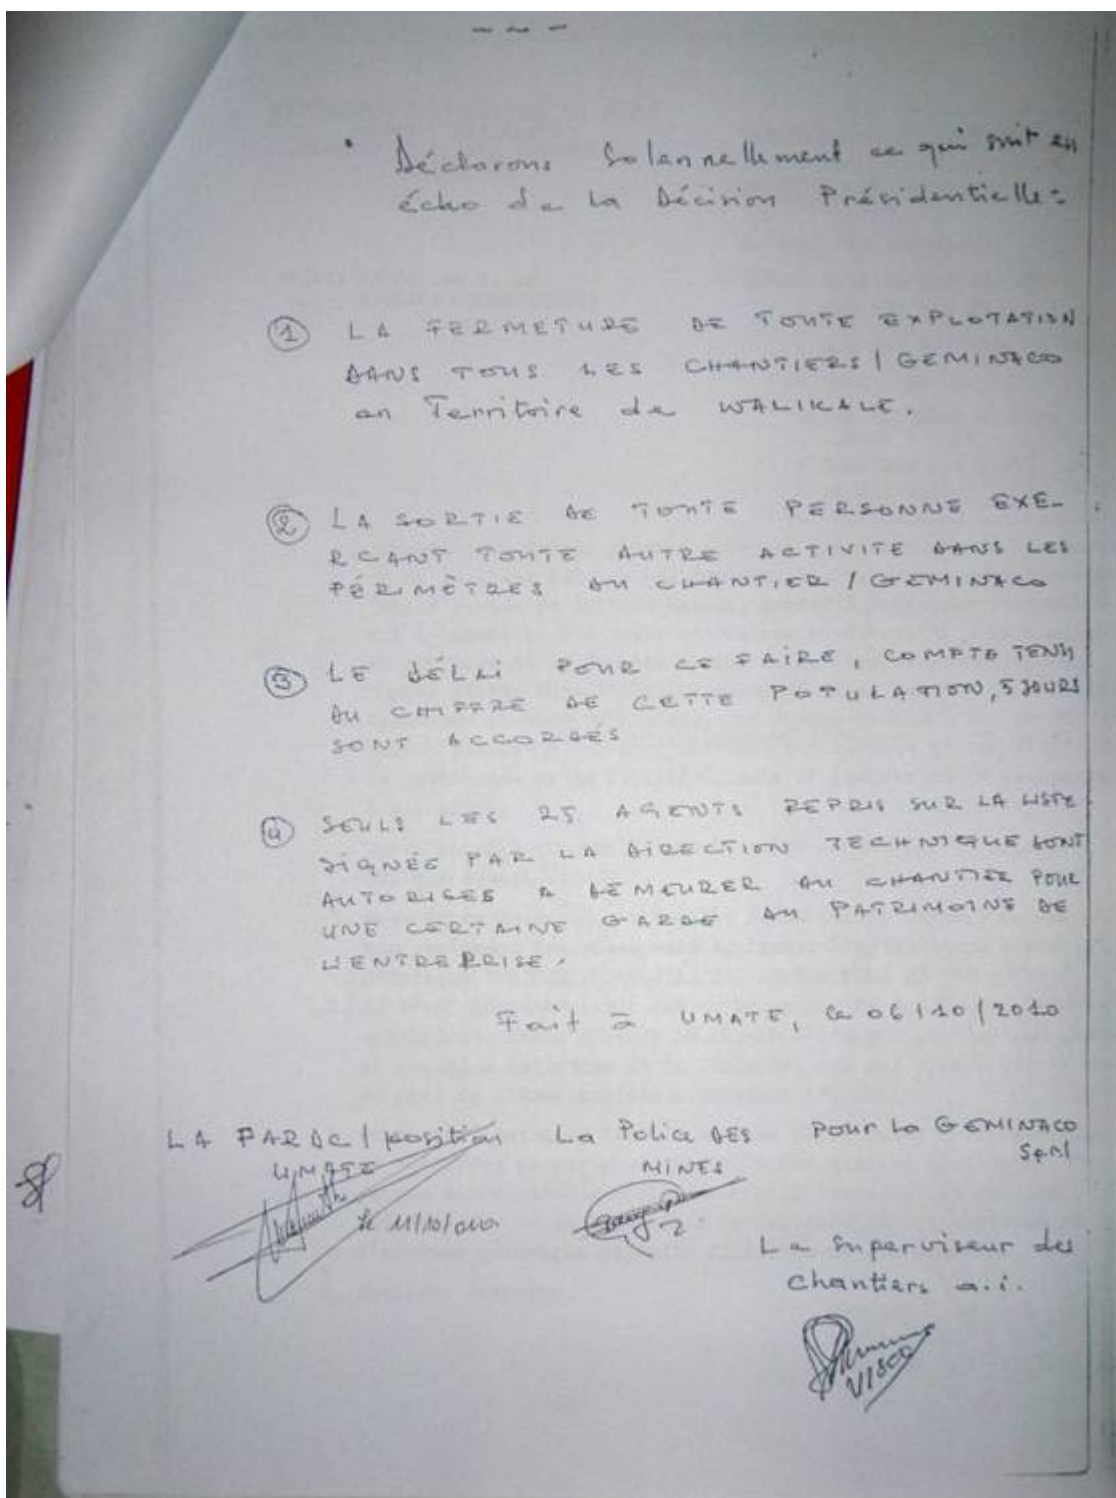 • Déclarons Solennellement ce qui suit en
écho de la Décision Présidentielle :
① LA FERMETURE DE TOUTE EXPLOTATION
DANS TOUS LES CHANTIERS / GEMINACO
en Territoire de WALIKALE.
② LA SORTIE DE TOUTE PERSONNE EXE-
RCANT TOUTE AUTRE ACTIVITE DANS LES
PÉRIMÈTRES DU CHANTIER / GEMINACO
③ LE DÉLAI POUR CE FAIRE, COMPTE TENU
DU CHIFFRE DE CETTE POPULATION, 5 JOURS
SONT ACCORDÉS
④ SEULS LES 25 AGENTS REPRIS SUR LA LISTE
SIGNÉE PAR LA DIRECTION TECHNIQUE SONT
AUTORISES A DEMEURER AU CHANTIER POUR
UNE CERTAINE GARDE DU PATRIMOINE DE
L'ENTREPRISE.
Fait à UMATE, le 06/10/2010
LA FARDC / position La Police DES pour la GEMINACO
UMATE MINES Sprl
le 11/10/2010
Le Superviseur des
chantiers a.i.
VISCO